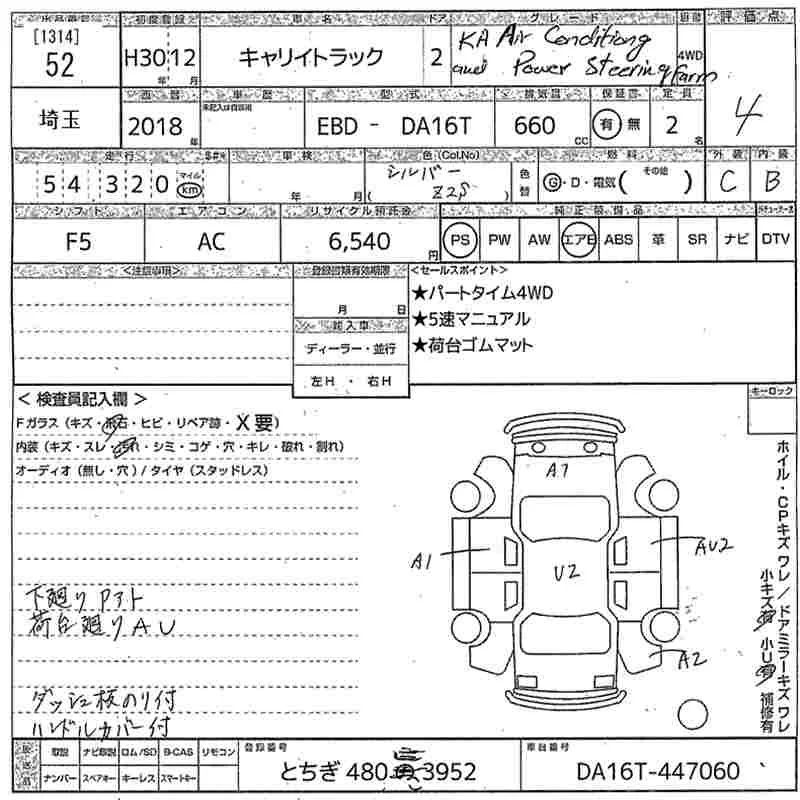 出品番号 初度登録 車名 ドア グレード 駆動 評価点
[1314]
52 H30 年 12 月 キャリイトラック 2 KA Air Conditiong and Power Steering Farm 4WD 4
西暦 車歴 型式 排気量 保証書 定員
未記入は自家用
埼玉 2018 年 EBD - DA16T 660 CC 有 無 2 名
走行 車検 色(Col.No) 燃料 外装 内装
54320 マイル km 年 月 シルバー ( Z2S ) 色替 G・D・電気( その他 ) C B
シフト エアコン リサイクル預託金 純正装備品
F5 AC 6,540 円 PS PW AW エアB ABS 革 SR ナビ DTV
<注意事項> 登録書類有効期限 <セールスポイント>
月 日 ★パートタイム4WD
輸入車 ★5速マニュアル
ディーラー・並行 ★荷台ゴムマット
左H ・ 右H
キーロック
< 検査員記入欄 >
Fガラス (キズ・飛石・ヒビ・リペア跡・X要)
内装 (キズ・スレ・汚れ・シミ・コゲ・穴・キレ・破れ・割れ)
オーディオ (無し・穴) / タイヤ (スタッドレス)
A1
A1
AU2
U2
A2
ホイル・CPキズワレ/ドアミラーキズワレ
小キズ有 小U有 補修有
下廻りPアト
荷台廻りAU
ダッシュ板のり付
ハンドルカバー付
取説 ナビ取説 ロム/SD B-CAS リモコン 登録番号 車台番号
ナンバー スペアキー キーレス スマートキー とちぎ 480 3952 DA16T-447060